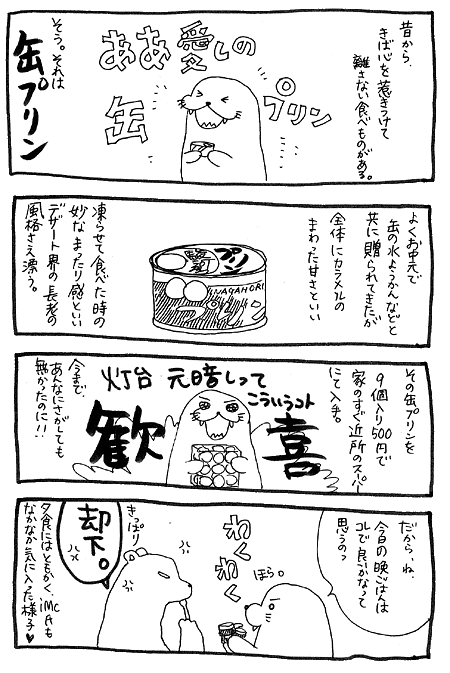 昔から、
きば心を惹きつけて
離さない食べものがある。
ああ愛しの
缶プリン
そう。それは
缶プリン
よくお中元で
缶の水ようかんなどと
共に贈られてきたが
全体にカラメルの
まわった甘さといい
プリン
NAGAHORI
プリン
凍らせて食べた時の
妙なまったり感といい
デザート界の長老の
風格さえ漂う。
その缶プリンを
9個入り500円で
家のすぐ近所のスーパー
にて入手。
灯台 元暗しって
こういうコト
歓喜
今まで、
あんなにさがしても
無かったのに!!
だから、ね、
今日の晩ごはんは
コレで良いかなって
思うのっ
わくわく
ほら。
きっぱり
却下。
夕食にはともかく、iMCAも
なかなか気に入った様子♥